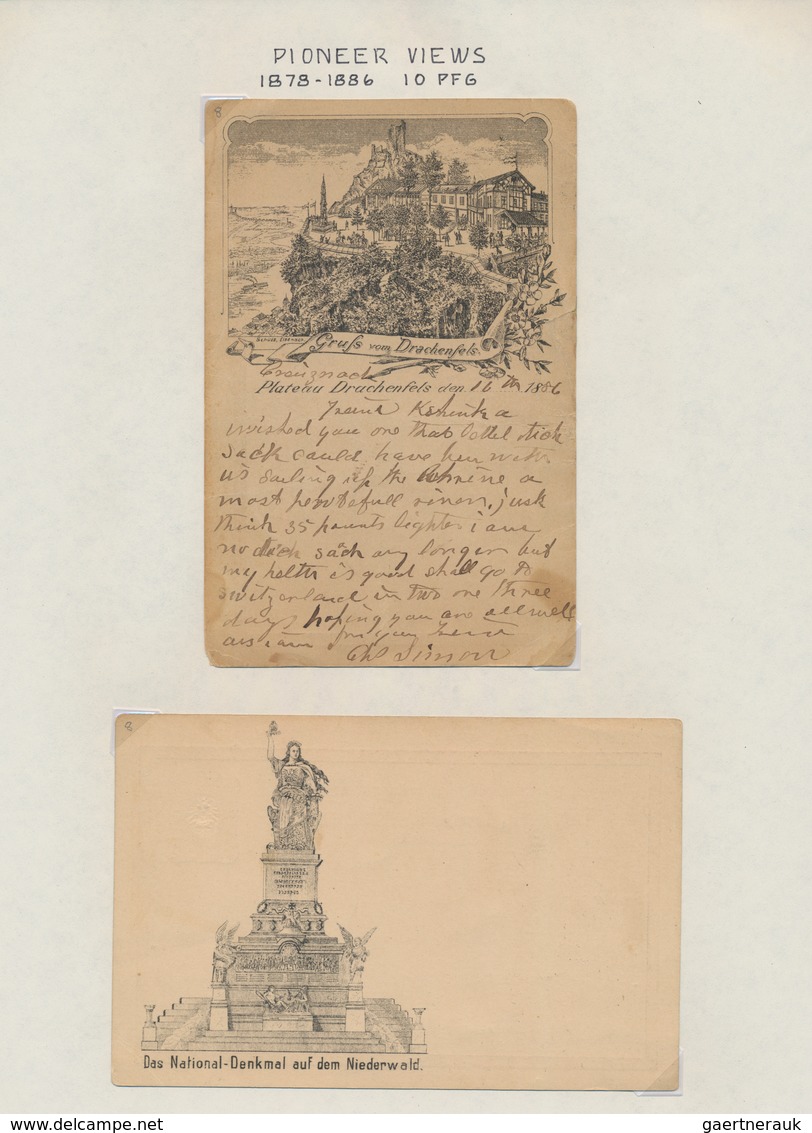 PIONEER VIEWS
1878-1886 10 PFG
8
Gruss vom Drachenfels.
Creuznach
Plateau Drachenfels den 16 th 1886
wished you one that
sack could have ben with
us sailing up the Rhine a
most bewtefull river. just
think 35 pounts lighter i am
no sack any longer but
my helth is good shall go to
switzerland in two one three
days hoping you are all well
as i am
Simon
8
Das National-Denkmal auf dem Niederwald.
gaertnerauk